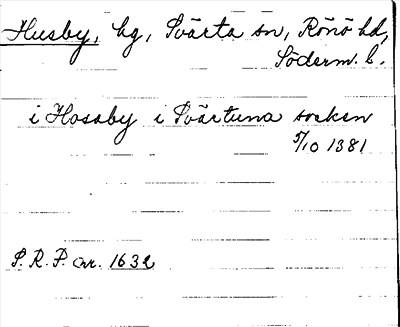 Husby, hg, Svärta sn, Rönö hd,
Söderm. l.
i Hossby i Svärtuna socken
5/10 1381
S. R. P. nr. 1632